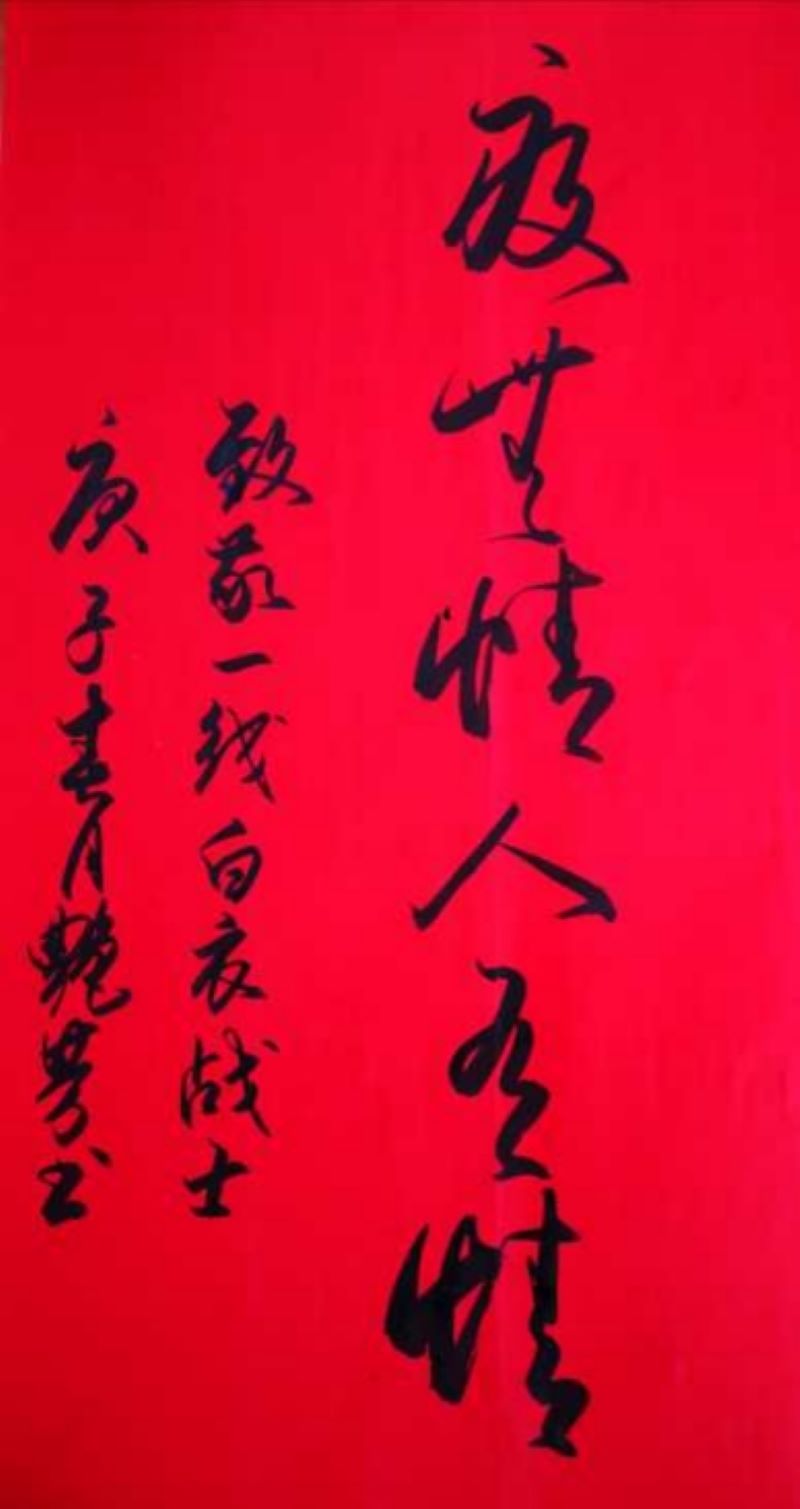 疫無情人有情
致敬一线白衣战士
庚子春月艳芳书